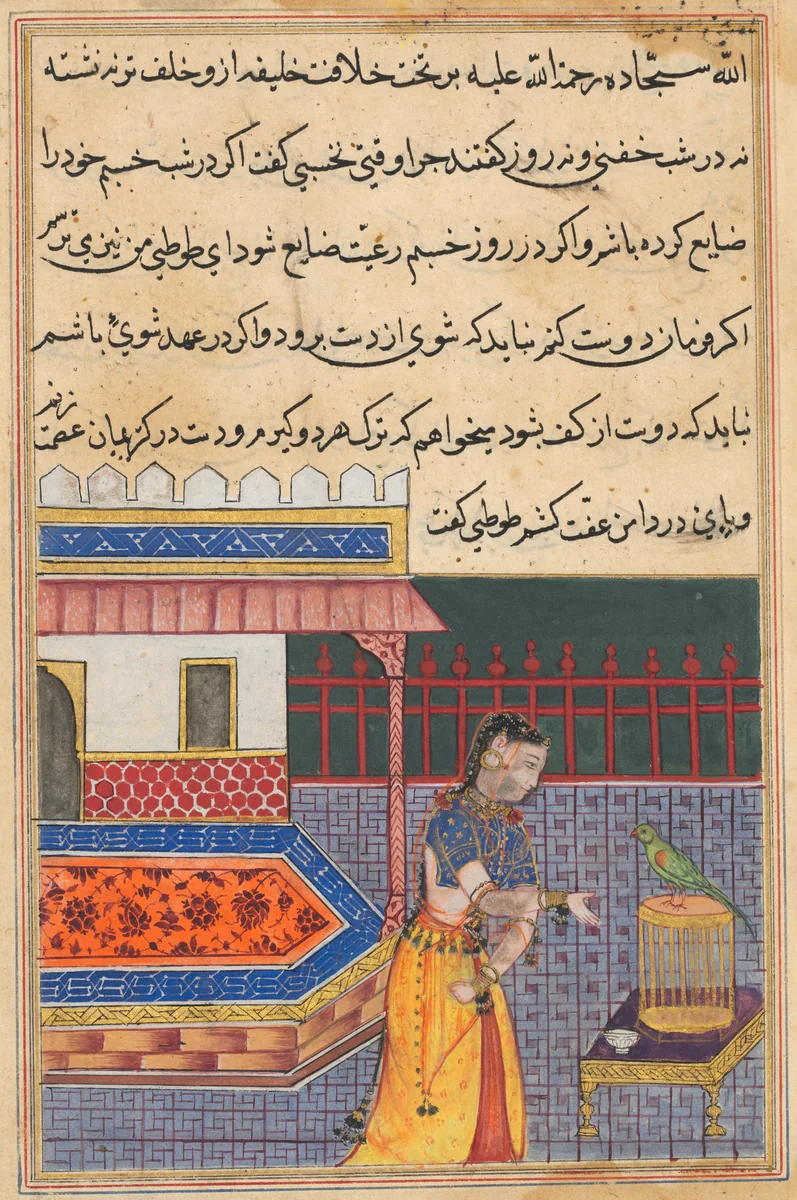 الله سجّاده رحمة الله علیه بر تخت خلافت خلیفه از و خلف تو نه نشسته
نه در شب خفتی و نه روز کفتند جرا وقتی نخسبی کفت اکر در شب خسبم خود را
ضایع کرده باشم و اکر در روز خسبم رعیّت ضایع شود ای طوطی من نیز می ترسم
اکر فرمان دوست کنم نباید که شوی از دست برود و اکر در عهد شوئ باشم
نباید که دوست از کف بشود میخواهم که ترک هر دو کیرم و دست در کریبان عصمت زنم
و پای در دامن عفّت کشم طوطی کفت